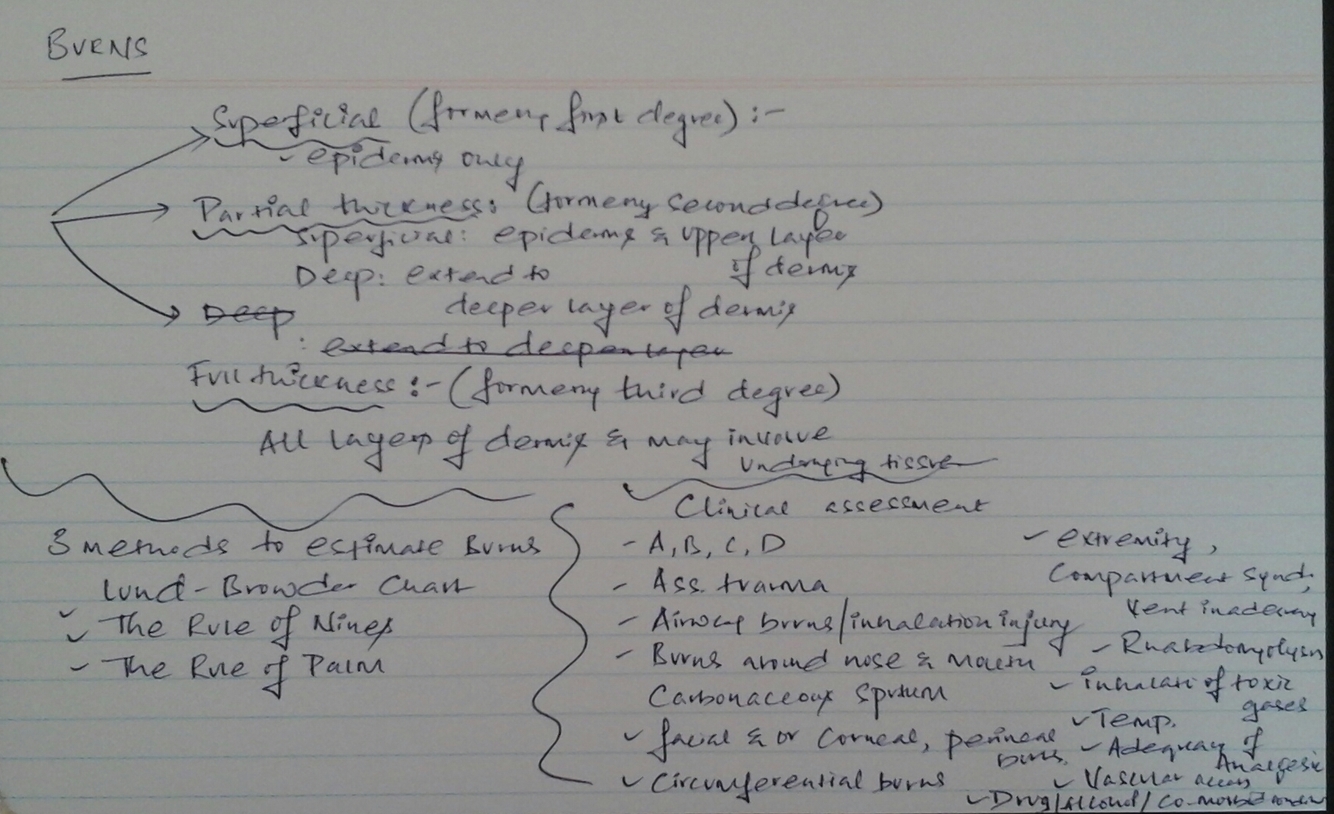 BURNS
Superficial (formerly first degree) :-
- epidermis only
Partial thickness: (formerly second degree)
Superficial: epidermis & upper layer
of dermis
Deep: extend to
deeper layer of dermis
Deep
: extend to deeper layer
Full thickness :- (formerly third degree)
All layers of dermis & may involve
underlying tissue
3 methods to estimate Burns
Lund-Browder Chart
The Rule of Nines
- The Rule of Palm
Clinical assessment
- A, B, C, D
- Ass. trauma
- Airway burns/inhalation injury
- Burns around nose & mouth
Carbonaceous sputum
facial & or Corneal, perineal
burns
Circumferential burns
extremity,
Compartment synd,
Vent inadequacy
- Rhabdomyolysis
inhalati of toxic
gases
Temp.
Adequacy of
Analgesic
Vascular access
Drug/Alcohol/Co-morbid